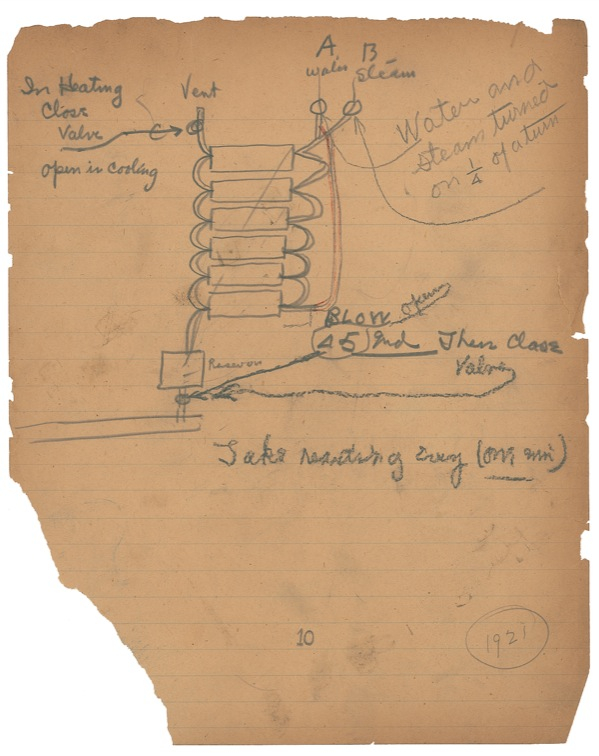 A B
Water Steam
In Heating
Close
Valve
open in cooling
Vent
Water and
steam turned
on 1/4 of a turn
Blow open
45 2nd Then Close
Valve
Take reading every (on min)
10